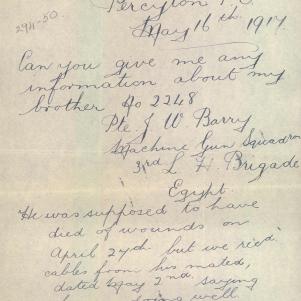 294-50
May 16th 1917
Can you give me any
information about my
brother No 2248
Pte J. W. Barry
Machine Gun Squadron
3rd L H. Brigade
Egypt.
He was supposed to have
died of wounds on
April 27th but we recd.
cables from his mates,
dated May 2nd saying
doing well